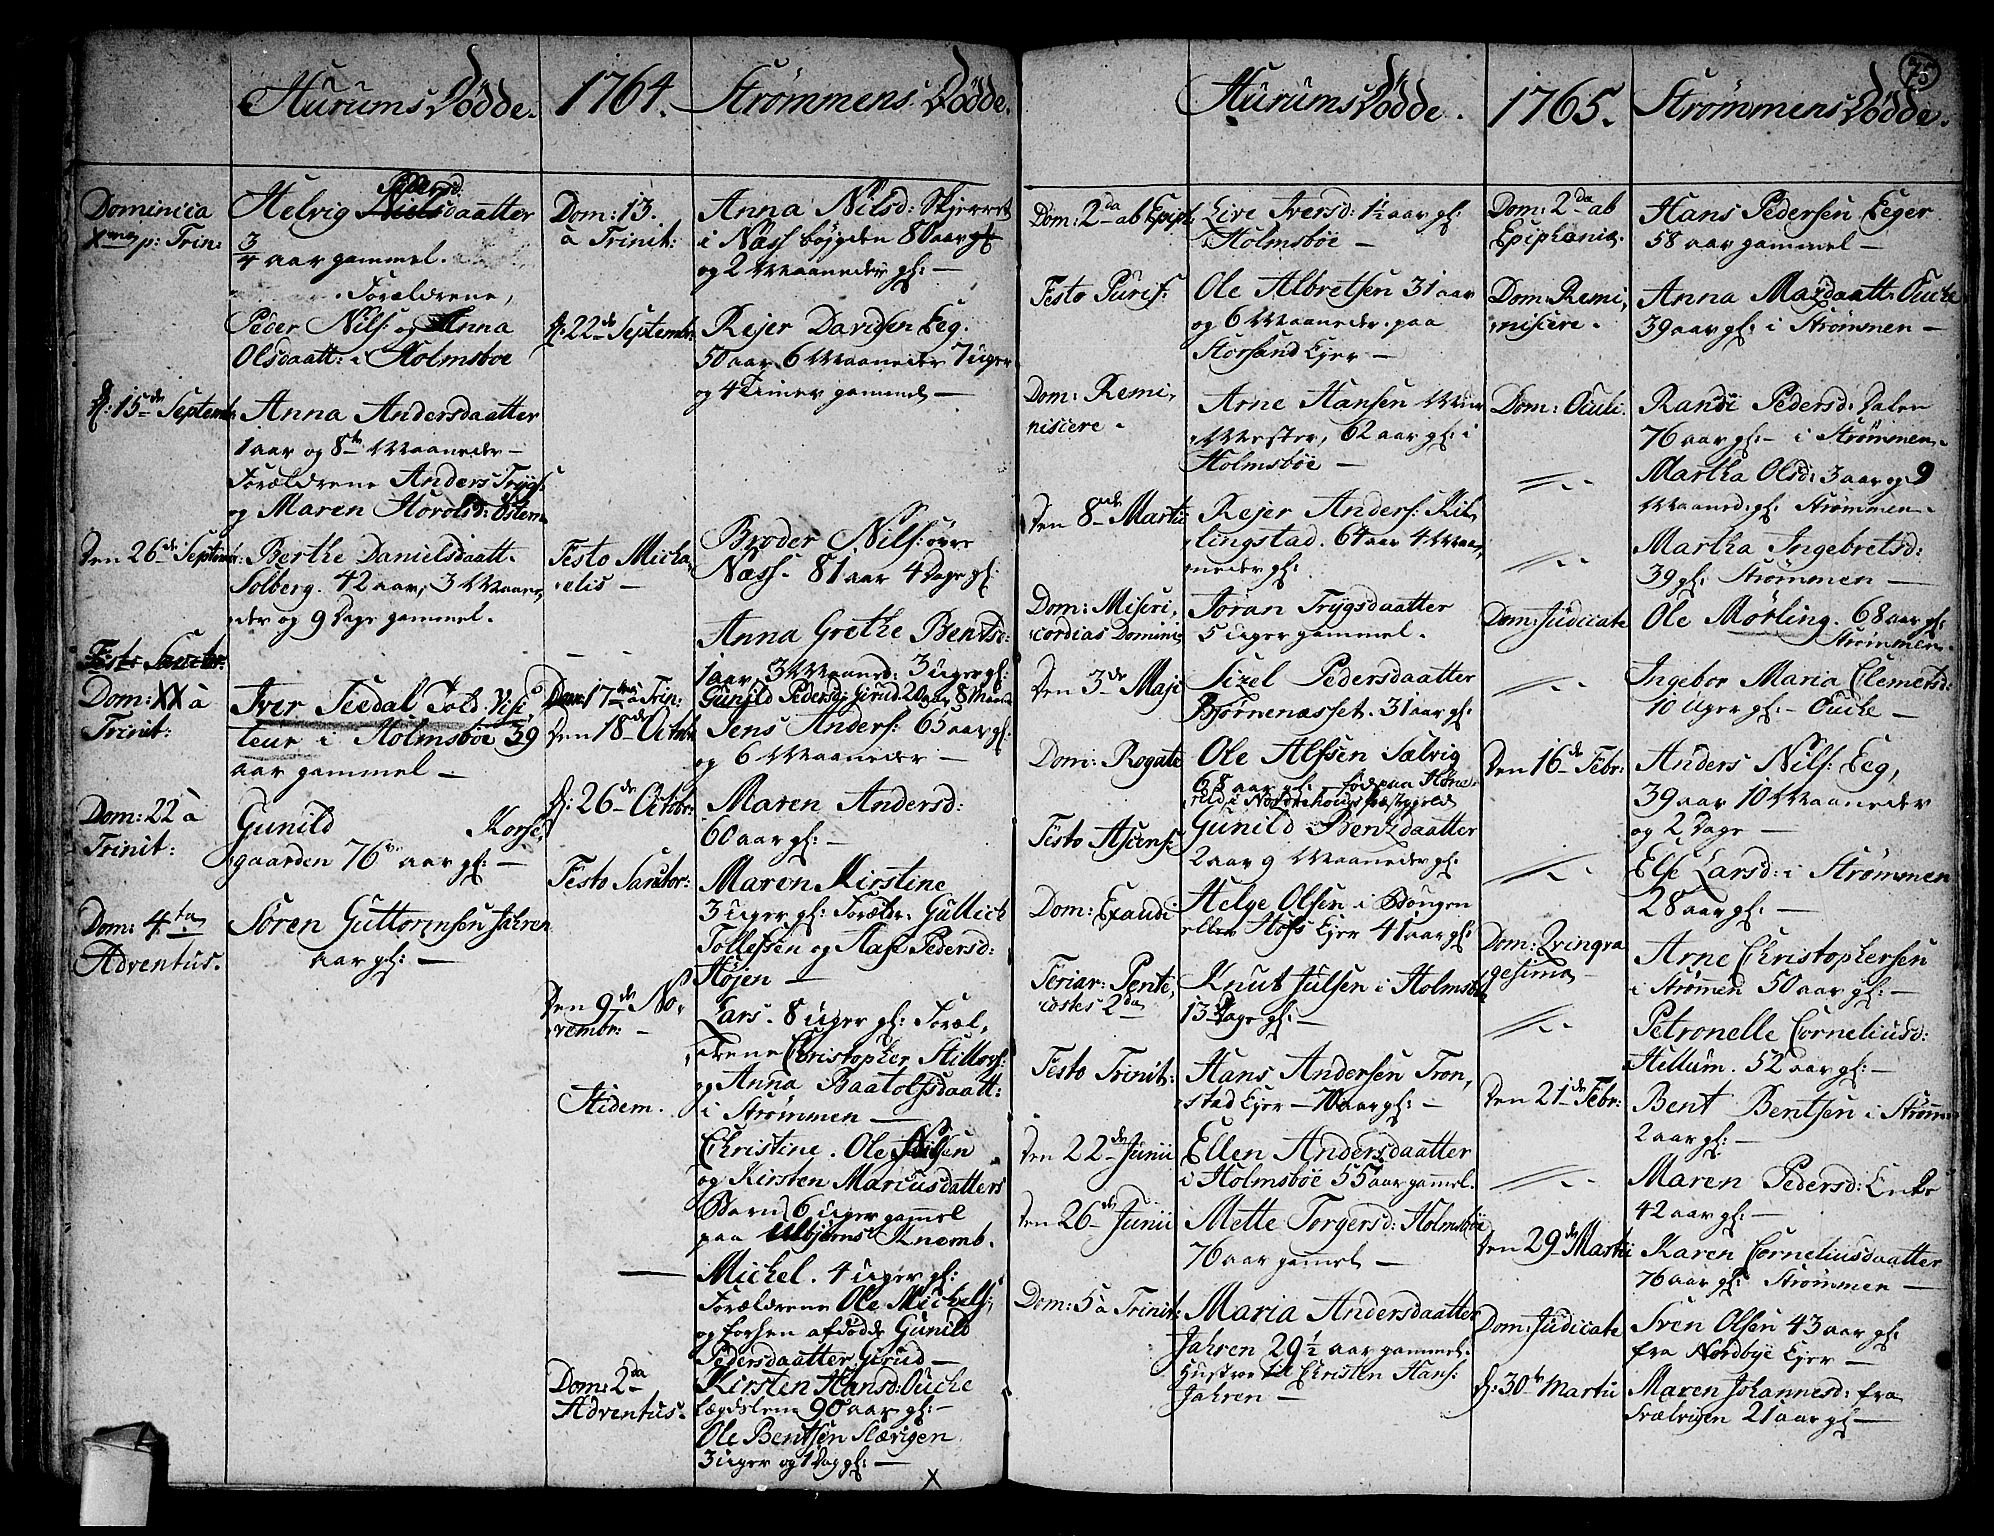 Hurums Dødde.
1764.
Strømmens Dødde.
Dominica
Xma p: Trin:
Pedersd.
Helvig Nielsdaatter
3/4 aar gammel.
Forældrene,
Peder Nils: og Anna
Olsdaatt: i Holmsboe
d: 15de Septembr
Anna Andersdaatter
1 aar og 8te Maaneder —
Forældrene Anders Trygs:
og Maren Harolsd:
Den 26de Septembr:
Berthe Danielsdaatt.
Solberg. 42 aar, 3 Maane,
der og 9 Dage gammel.
Festo Sanctor:
Dom: XX à
Trinit:
Iver Teedal Told Visi
teur i Holmsböe 39
aar gammel —
Dom: 22 à
Trinit:
Gunild Korse,
gaarden 76 aar gl: —
Dom: 4ta
Adventus.
Sören Guttormsen Jahren
aar gl: —
Dom: 13.
à Trinit:
Anna Nilsd: Skjerret
i Næss bøygden 80 aar gl
og 2 Maaneder gl: —
d: 22de Septembr:
Rejer Davidsen Eeg.
50 aar 6 Maaneder 7 uger
og 4 Timer gammel —
Festo Micha,
elis —
Broder Nils: övre
Næss. 81 aar 4 Dage gl:
Anna Grethe Bentsd:
1 aar, 3 Maaned: 3 uger gl:
Dom: 17 à Trin:
Gunild Pedersd: Girud
Den 18de Octobr
Jens Anders: 65 aar gl:
og 6 Maaneder —
d: 26de Octobr:
Maren Andersd:
60 aar gl: —
Festo Sanctor:
Maren Kirstine
3 uger gl: Forældr: Gullich
Tollefsen og Aase Pedersd:
Højen —
Den 9de No,
vembr: —
Lars. 8 uger gl: Foræl,
drene Christopher
og Anna Baatolfsdaatt:
i Strømmen —
Ibidem.
Christine. Ole Nilsen
og Kirsten Marcusdatters
Barn, 6 uger gammel
paa
Michel. 4 uger gl:
Forældrene Ole Michels:
og forhen afdödde Gunild
Pedersdaatter Girud —
Dom: 2da
Adventus.
Kirsten Hansd: Oucke
lægdslem 90 aar gl: —
Ole Bentsen
3 uger og 1 Dag gl: —
x
75
Hurums Dødde.
1765.
Strømmens Dødde.
Dom: 2da ab Epiph:
Live Iversd: 1½ aar gl:
i Holmsböe —
Festo Purif:
Ole Albretsen 31 aar
og 6 Maaneder. paa
Storsand Ejer —
Dom: Remi,
niscere.
Arne Hansen Mur
Mester, 62 aar gl: i
Holmsböe —
Den 8de Martii
Rejer Anders: Kil,
lingstad. 64 aar 4 Maa,
neder gl:
Dom: Miseri,
cordias Domini,
Joran Trygsdaatter
5 uger gammel.
Den 3de Maji
Sizel Pedersdaatter
Bjørnenæsset. 31 aar gl:
Dom: Rogate
Ole Alfsen Sælvig
68 aar gl: född paa Höne,
rud, i Norderhougs præstegield
Festo Ascens:
Gunild Bentzdaatter
2 aar 9 Maaneder gl:
Dom: Exaudi
Helge Olsen i
eller Hofs Ejer 41 aar gl:
Feriar: Pente,
costes 2da
Knut Julsen i Holmsböe
13 Dage gl: —
Festo Trinit:
Hans Andersen Tron,
stad Ejer — 70 aar gl: —
Den 22de Junii
Ellen Andersdaatter
i Holmsböe 55 aar gammel.
Den 26de Junii
Mette Torgersd: Holmsböe
76 aar gammel —
Dom: 5 à Trinit:
Maria Andersdaatter
Jahren 29½ aar gammel.
Hustroe til Christen Hans:
Jahren —
Dom: 2da ab
Epiphania.
Hans Pedersen Eeger
58 aar gammel —
Dom: Remi,
niscere.
Anna Madsdaatt: Oucke
39 aar gl: i Strømmen —
Dom: Oculi.
Randi Pedersd: Dalen
76 aar gl: — i Strømmen.
Martha Olsd: 3 aar og 9
Maaned: gl: Strømmen —
Martha Ingebretsd:
39 gl: Strømmen —
Dom: Judicate
Ole Mörling. 68 aar gl:
Strømmen.
Ingebor Maria Clemetsd:
10 Uger gl: — Oucke —
Den 16de Febr:
Anders Nils: Eeg,
39 aar 10 Maaneder
og 2 Dage —
Else Larsd: i Strømmen
28 aar gl: —
Dom: Qvinqva
gesima
Arne Christophersen
i Strømen 50 aar gl: —
Petronelle Corneliusd:
Hillum. 52 aar gl: —
Den 21de Febr:
Bent Bentsen i Strømm
2 aar gl: —
Maren Pedersd: Enke
42 aar gl: —
Den 29de Martii
Karen Corneliusdaatter
76 aar gl: Strømmen —
Dom: Judicate
Sven Olsen 43 aar gl:
fra Nordbye Ejer —
d: 30te Martii
Maren Johannesd: fra
Svælvigen 21 aar gl: —